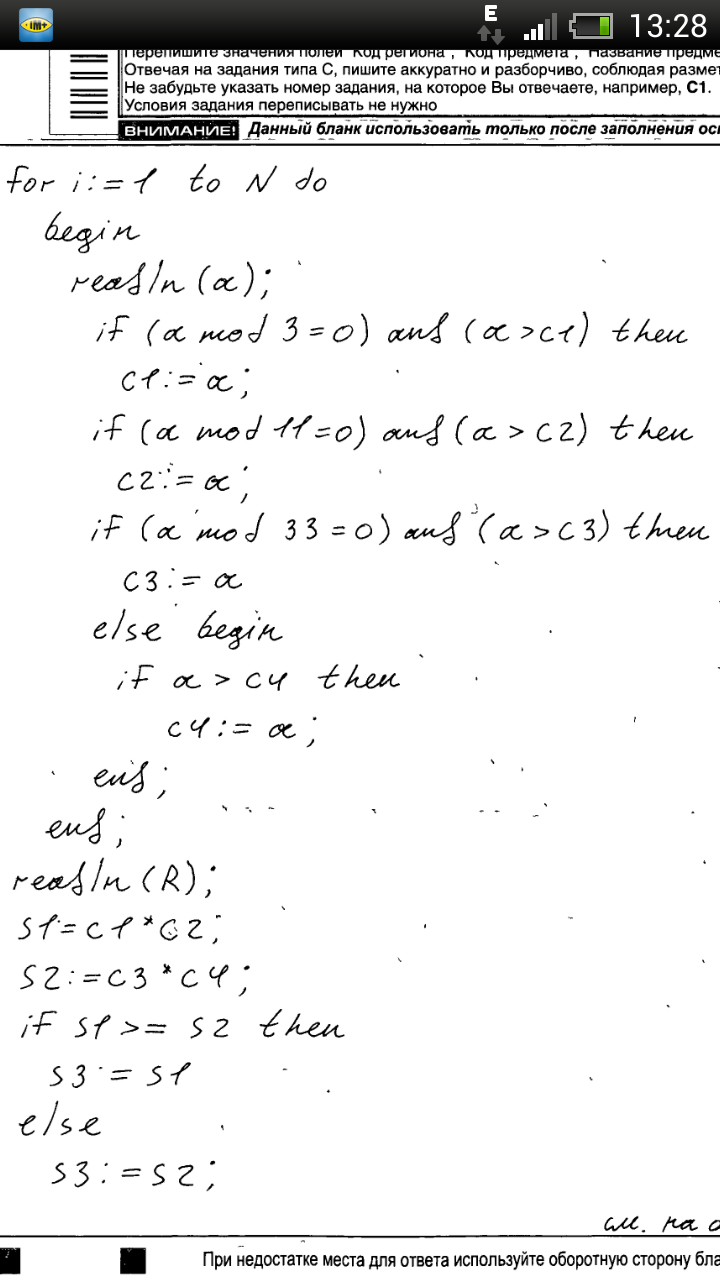 IM+
E
13:28
Перепишите значения полей "Код региона", "Код предмета", "Название предме
Отвечая на задания типа С, пишите аккуратно и разборчиво, соблюдая размет
Не забудьте указать номер задания, на которое Вы отвечаете, например, С1.
Условия задания переписывать не нужно
ВНИМАНИЕ! Данный бланк использовать только после заполнения осн
for i:=1 to N do
begin
readln(a);
if (a mod 3=0) and (a>c1) then
c1:=a;
if (a mod 11=0) and (a>c2) then
c2:=a;
if (a mod 33=0) and (a>c3) then
c3:=a
else begin
if a>c4 then
c4:=a;
end;
end;
readln(R);
S1:=c1*c2;
S2:=c3*c4;
if S1>=S2 then
S3:=S1
else
S3:=S2;
см. на о
При недостатке места для ответа используйте оборотную сторону бла